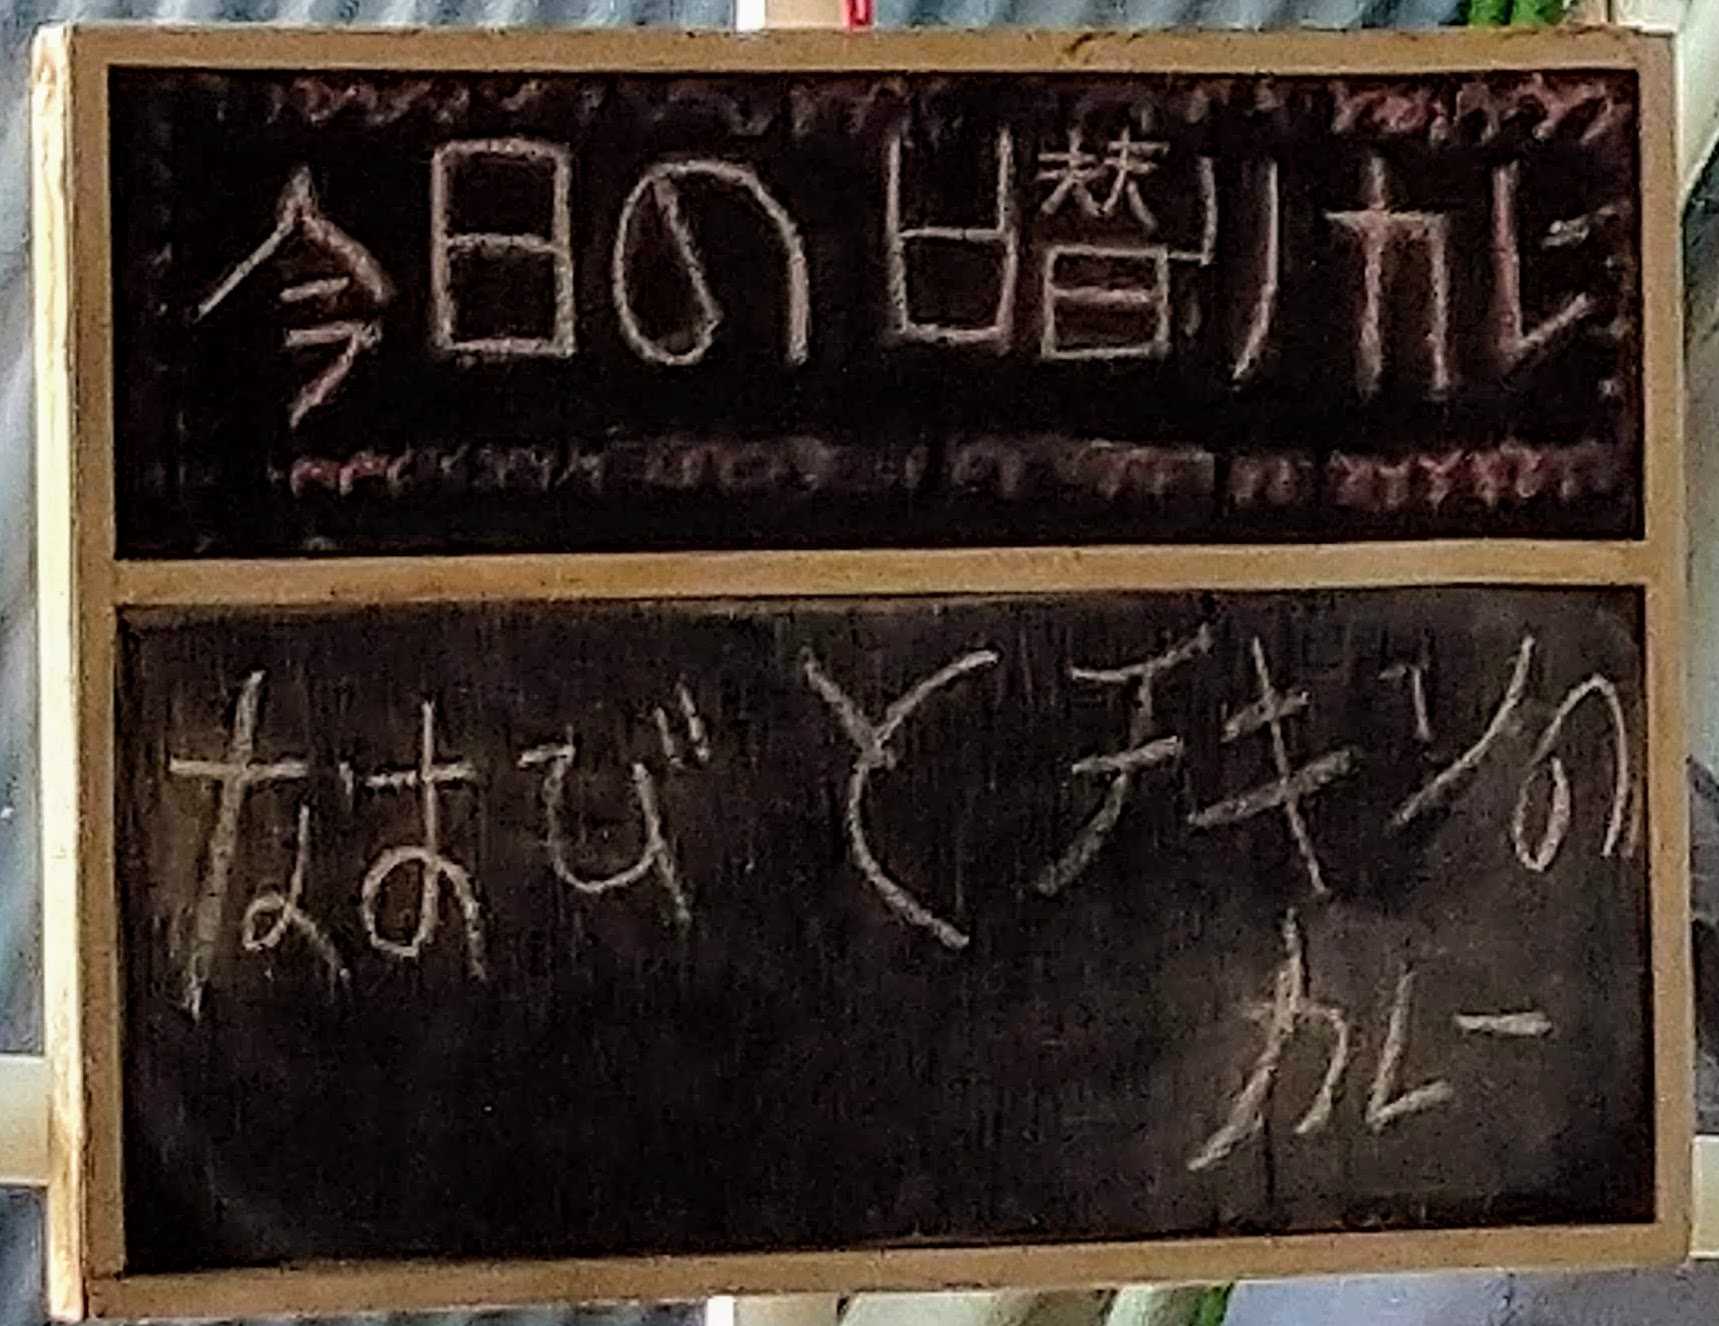 今日の日替りカレー
なすびとチキンの
カレー